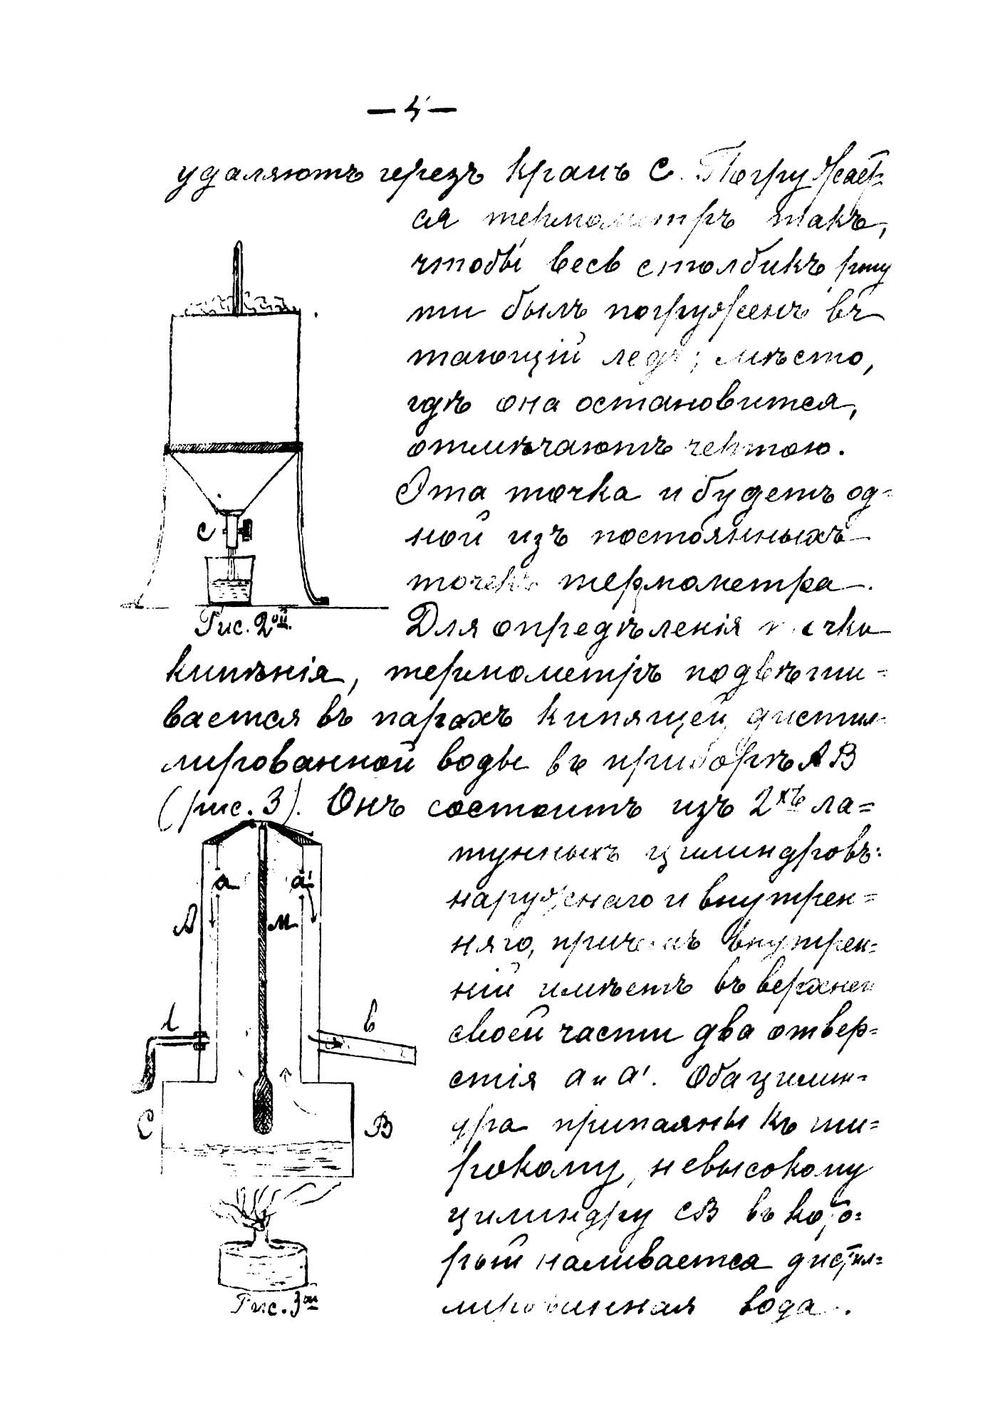 — 4 —
удаляютъ черезъ кранъ С. Погружает-
ся термометръ такъ,
чтобы весь столбикъ рту
ти былъ погруженъ въ
тающій ледъ; мѣсто,
гдѣ она остановится,
отмѣчаютъ чертою.
Эта точка и будетъ од=
ной изъ постоянныхъ
точекъ термометра.
С
Рис. 2ой.
Для опредѣленія точки
кипѣнія, термометръ подвѣши-
вается въ парахъ кипящей дистил-
лированной воды въ приборѣ АВ
(рис. 3). Онъ состоитъ изъ 2хъ ла=
тунныхъ цилиндровъ:
наружнаго и внутрен=
няго, причемъ внутрен=
ній имѣетъ въ верхней
своей части два отвер=
стія а и а'. Оба цилин=
дра припаяны къ ши=
рокому, невысокому
цилиндру СВ въ кото=
рый наливается дистил=
лированная вода.
а а'
А м
l в
С В
Рис. 3ій